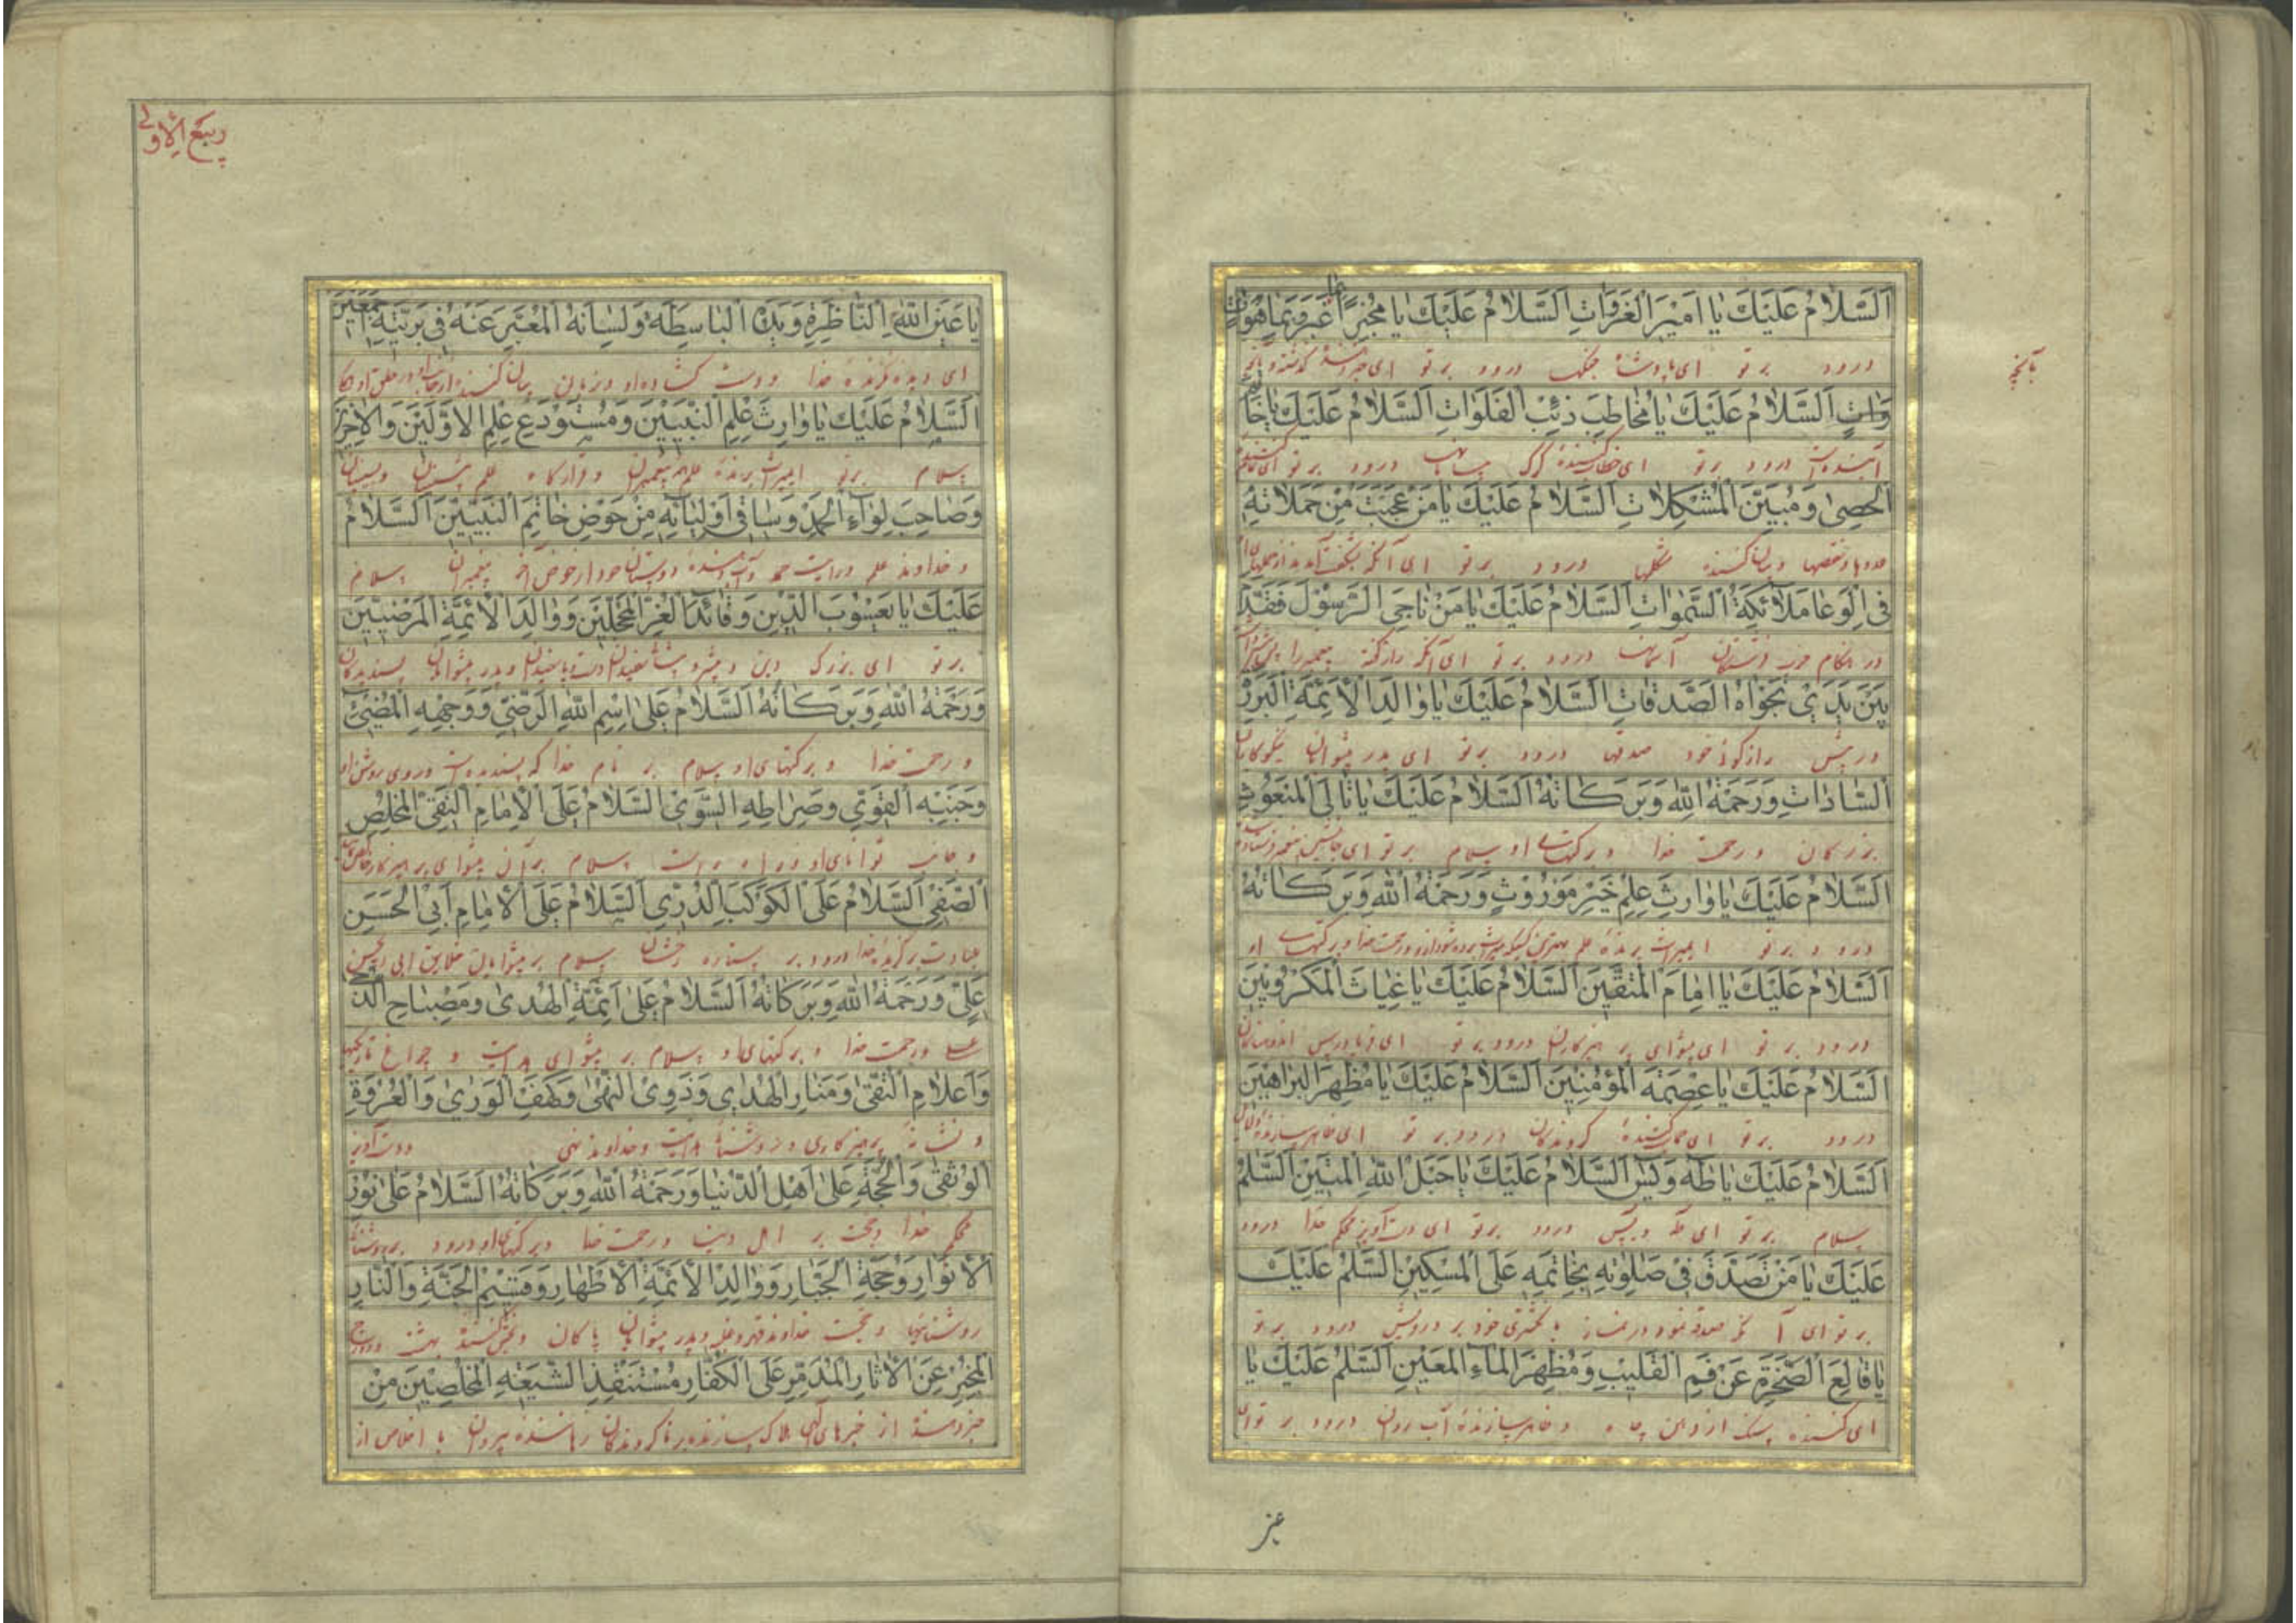 اَلسَّلامُ عَلَيْكَ يا اَميرَ الغَزَواتِ اَلسَّلامُ عَلَيْكَ يا مُخْبِراً بِما غَبَرَ وَبِما هُوَ اٰتٍ
درود بر تو ای پادشاه جنگها درود بر تو ای خبر دهنده گذشته و آنچه
بآنچه
وَاٰتٍ اَلسَّلامُ عَلَيْكَ يا مُخاطِبَ ذِئْبِ الفَلَواتِ اَلسَّلامُ عَلَيْكَ يا خاتِمَ
آینده است درود بر تو ای خطاب کننده گرگ بیابانها درود بر تو ای
اَلْحَصىٰ وَمُبَيِّنَ الْمُشْكِلاتِ اَلسَّلامُ عَلَيْكَ يا مَنْ عَجِبَتْ مِنْ حَمَلاتِهِ
و بیان کننده مشکلها درود بر تو ای آنکه بشگفت آمدند از حملهای او
فِى الْوَغا مَلائِكَةُ السَّمٰواتِ اَلسَّلامُ عَلَيْكَ يا مَنْ ناجَى الرَّسُولَ فَقَدَّمَ
در هنگام حرب فرشتگان آسمانها درود بر تو ای آنکه راز گفته پیغمبر را
بَيْنَ يَدَىْ نَجْواهُ الصَّدَقاتِ اَلسَّلامُ عَلَيْكَ يا والِدَ الْاَئِمَّةِ الْبَرَرَةِ
در پیش رازگوئی خود صدقها درود بر تو ای پدر پیشوایان نیکوکاران
السّاداتِ وَرَحْمَةُ اللّٰهِ وَبَرَكاتُهُ اَلسَّلامُ عَلَيْكَ يا تالِىَ الْمَبْعُوثِ
بزرگان و رحمت خدا و برکتهای او سلام بر تو ای جانشین
اَلسَّلامُ عَلَيْكَ يا وارِثَ عِلْمِ خَيْرِ مَوْرُوثٍ وَرَحْمَةُ اللّٰهِ وَبَرَكاتُهُ
درود بر تو ای میراث برنده علم بهترین و رحمت خدا و برکتهای او
اَلسَّلامُ عَلَيْكَ يا اِمامَ الْمُتَّقينَ اَلسَّلامُ عَلَيْكَ يا غِياثَ الْمَكْرُوبينَ
درود بر تو ای پیشوای پرهیزکاران درود بر تو ای فریادرس اندوهناکان
اَلسَّلامُ عَلَيْكَ يا عِصْمَةَ الْمُؤْمِنينَ اَلسَّلامُ عَلَيْكَ يا مُظْهِرَ الْبَراهينِ
درود بر تو ای گروندگان درود بر تو ای ظاهر سازنده
اَلسَّلامُ عَلَيْكَ يا طٰهٰ وَيٰسٓ اَلسَّلامُ عَلَيْكَ يا حَبْلَ اللّٰهِ الْمَتينِ اَلسَّلٰمُ
سلام بر تو ای طه و یس درود بر تو ای دست آویز محکم خدا درود
عَلَيْكَ يا مَنْ تَصَدَّقَ فى صَلٰوتِهِ بِخاتَمِهِ عَلَى الْمِسْكينِ اَلسَّلٰمُ عَلَيْكَ
بر تو ای آنکه صدقه نمود در نماز بانگشتری خود بر درویش درود بر تو
يا قالِعَ الصَّخْرَةِ عَنْ فَمِ الْقَليبِ وَمُظْهِرَ الْماءِ الْمَعينِ اَلسَّلٰمُ عَلَيْكَ يا
ای کننده سنگ از دهن چاه و ظاهر سازنده آب روان درود بر تو ای
عين
ربيع الاولى
يا عَيْنَ اللّٰهِ النّاظِرَةَ وَيَدَهُ الْباسِطَةَ وَلِسانَهُ الْمُعَبِّرَ عَنْهُ فى بَرِيَّتِهِ اَجْمَعينَ
ای دیده نگرنده خدا و دست گشاده او و زبان بیان کننده
اَلسَّلامُ عَلَيْكَ يا وارِثَ عِلْمِ النَّبِيّينَ وَمُسْتَوْدَعَ عِلْمِ الْاَوَّلينَ وَالْاٰخِرينَ
سلام بر تو ای میراث برنده علم پیغمبران و قرارگاه علم پیشینیان و پسینیان
وَصاحِبَ لِواءِ الْحَمْدِ وَساقِىَ اَوْلِيائِهِ مِنْ حَوْضِ خاتَمِ النَّبِيّينَ اَلسَّلامُ
و خداوند علم و رایت حمد و آب دهنده دوستان خود از حوض آخر پیغمبران سلام
عَلَيْكَ يا يَعْسُوبَ الدّينِ وَقائِدَ الْغُرِّ الْمُحَجَّلينَ وَوالِدَ الْاَئِمَّةِ الْمَرْضِيّينَ
بر تو ای بزرگ دین و و پدر پیشوایان پسندیدگان
وَرَحْمَةُ اللّٰهِ وَبَرَكاتُهُ اَلسَّلامُ عَلَى اسْمِ اللّٰهِ الرَّضِىِّ وَوَجْهِهِ الْمُضىءِ
و رحمت خدا و برکتهای او سلام بر نام خدا که پسندیده است و روی روشن او
وَجَنْبِهِ الْقَوِىِّ وَصِراطِهِ السَّوِىِّ اَلسَّلامُ عَلَى الْاِمامِ التَّقِىِّ الْمُخْلِصِ
و جانب توانای او و راه راست سلام بر آن پیشوای پرهیزکار
الصَّفِىِّ اَلسَّلامُ عَلَى الْكَوْكَبِ الدُّرِّىِّ اَلسَّلامُ عَلَى الْاِمامِ اَبِى الْحَسَنِ
درود بر ستاره رخشان سلام بر پیشوایان خلایق ابی الحسن
عَلِىٍّ وَرَحْمَةُ اللّٰهِ وَبَرَكاتُهُ اَلسَّلامُ عَلى اَئِمَّةِ الْهُدىٰ وَمَصْباحِ الدُّجىٰ
علی و رحمت خدا و برکتهای او سلام بر پیشوای هدایت و چراغ تاریکیها
وَاَعْلامِ التُّقىٰ وَمَنارِ الْهُدىٰ وَذَوِى النُّهىٰ وَكَهْفِ الْوَرىٰ وَالْعُرْوَةِ
و نشانه پرهیزکاری و هدایت و خداوند نهی و دست آویز
الْوُثْقىٰ وَالْحُجَّةِ عَلى اَهْلِ الدُّنْيا وَرَحْمَةُ اللّٰهِ وَبَرَكاتُهُ اَلسَّلامُ عَلى نُورِ
محکم خدا و حجت بر اهل دنیا و رحمت خدا و برکتهای او درود بر
الْاَنْوارِ وَحُجَّةِ الْجَبّارِ وَوالِدِ الْاَئِمَّةِ الْاَطْهارِ وَقَسيمِ الْجَنَّةِ وَالنّارِ
روشنائیها و حجت خداوند و پدر پیشوایان پاکان و بخش کننده بهشت و دوزخ
الْمُخْبِرِ عَنِ الْاٰثارِ الْمُدَمِّرِ عَلَى الْكُفّارِ مُسْتَنْقِذِ الشّيعَةِ الْمُخْلِصينَ مِنْ
خبر دهنده از خبرهای هلاک سازنده ناگروندگان رهاننده پیروان با اخلاص از